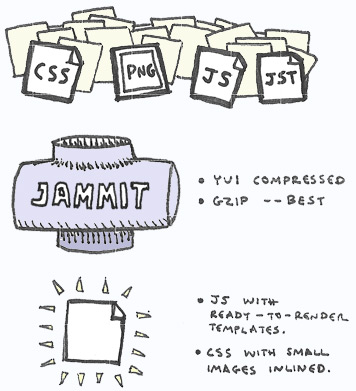 CSS
PNG
JS
JST
JAMMIT
• YUI COMPRESSED
• GZIP --BEST
• JS WITH
READY-TO-RENDER
TEMPLATES.
• CSS WITH SMALL
IMAGES INLINED.